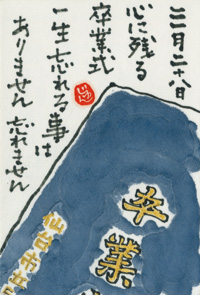 三月二十八日
心に残る
卒業式
一生忘れる事は
ありません 忘れません
卒業
仙台市立